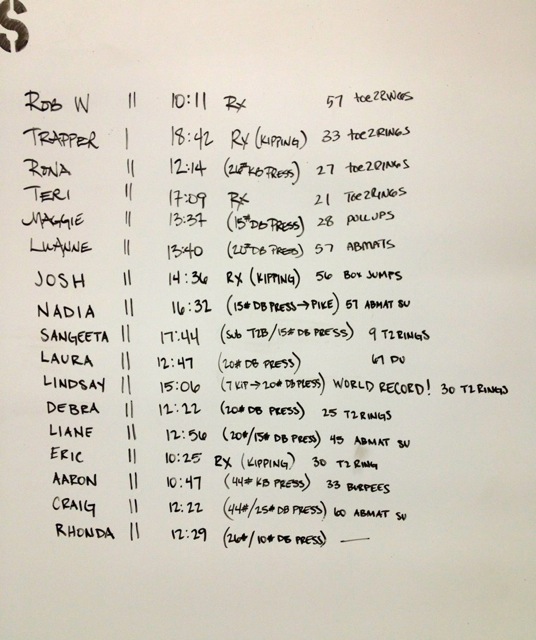 S
ROB W || 10:11 RX 57 toe2RINGS
TRAPPER | 18:42 RX (KIPPING) 33 toe2RINGS
RONA || 12:14 (26# KB PRESS) 27 toe2RINGS
TERI || 17:09 RX 21 TOE2RINGS
MAGGIE || 13:37 (15# DB PRESS) 28 PULLUPS
LUANNE || 13:40 (20# DB PRESS) 57 ABMATS
JOSH || 14:36 RX (KIPPING) 56 BOX JUMPS
NADIA || 16:32 (15# DB PRESS → PIKE) 57 ABMAT SU
SANGEETA || 17:44 (SUB T2B/15# DB PRESS) 9 T2RINGS
LAURA || 12:47 (20# DB PRESS) 67 DU
LINDSAY || 15:06 (7 KIP → 20# DB PRESS) WORLD RECORD! 30 T2RINGS
DEBRA || 12:22 (20# DB PRESS) 25 T2RINGS
LIANE || 12:56 (20#/15# DB PRESS) 45 ABMAT SU
ERIC || 10:25 RX (KIPPING) 30 T2RING
AARON || 10:47 (44# KB PRESS) 33 BURPEES
CRAIG || 12:22 (44#/25# DB PRESS) 60 ABMAT SU
RHONDA || 12:29 (26#/10# DB PRESS) —